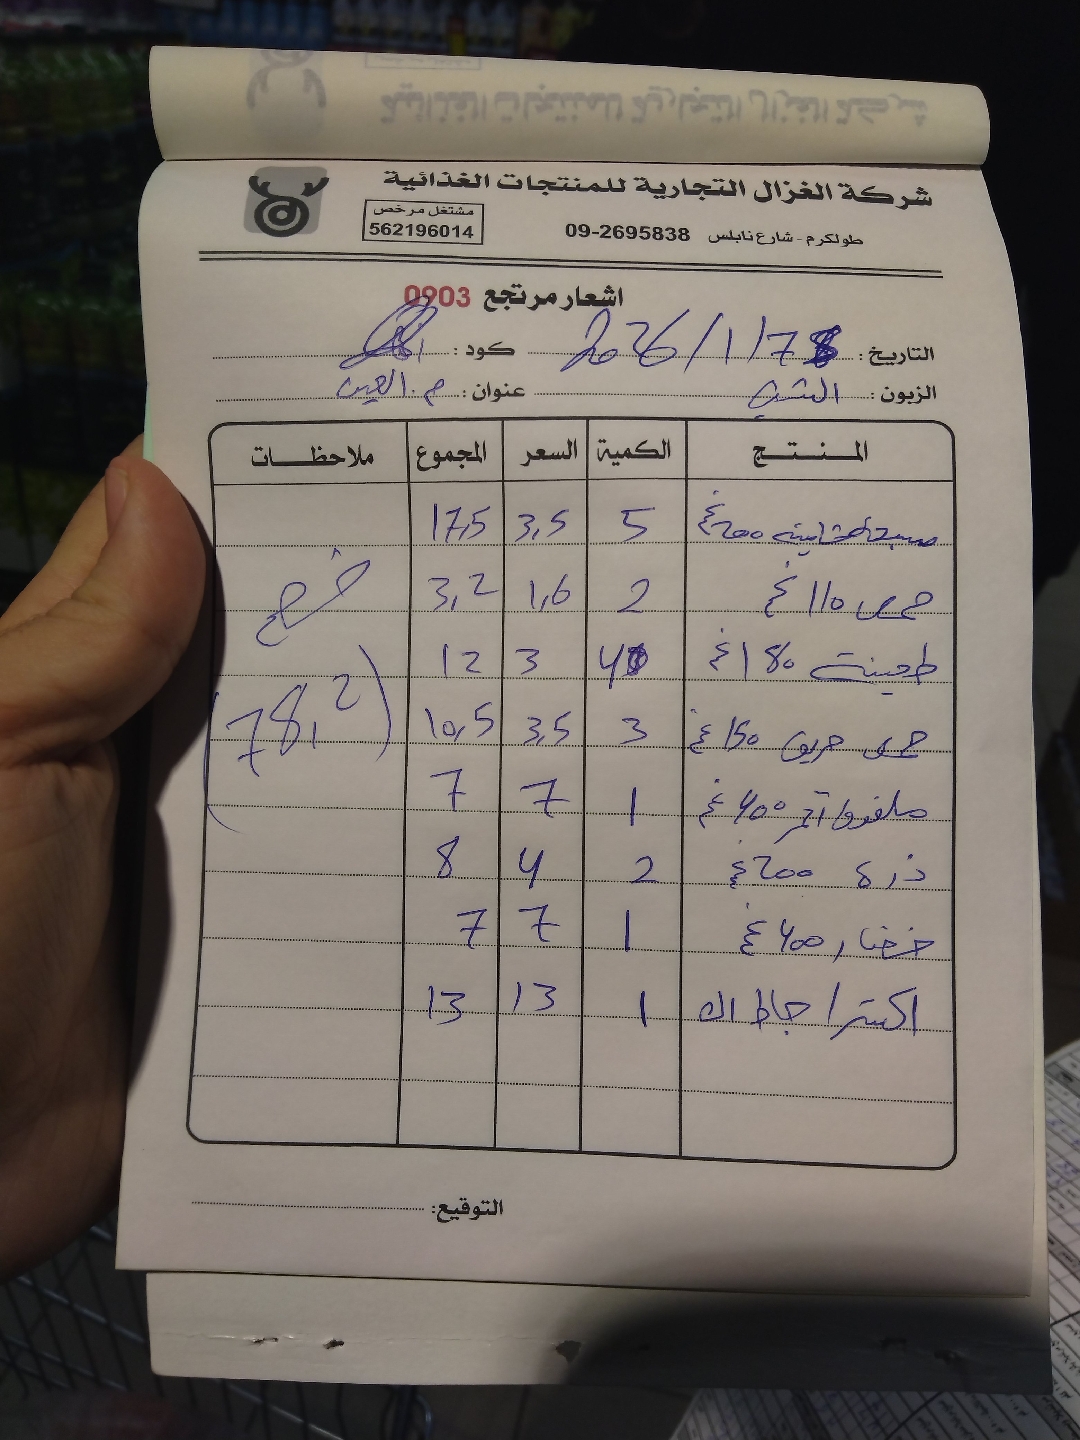 شركة الغزال التجارية للمنتجات الغذائية
مشتغل مرخص
562196014
طولكرم - شارع نابلس 09-2695838
اشعار مرتجع 0903
التاريخ: 2026/1/7 كود:
الزبون: عنوان: م. العين
المنتج الكمية السعر المجموع ملاحظات
200غ 5 3,5 17,5
حمص 110 غ 2 1,6 3,2
خصم
طحينة 180 غ 4 3 12
حمص حريق 150 غ 3 3,5 10,5
(78,2)
ملفوف أحمر 400 غ 1 7 7
ذرة 200غ 2 4 8
خضار 400غ 1 7 7
اكسترا / 1 13 13
التوقيع: